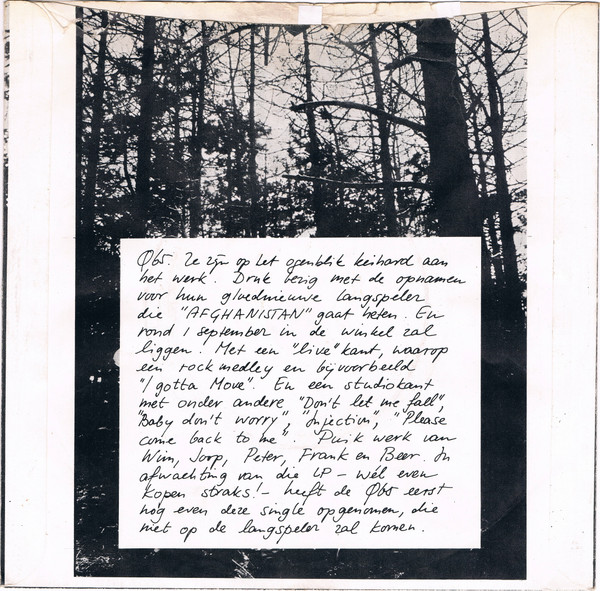 Q65. Ze zijn op het ogenblik keihard aan
het werk. Druk bezig met de opnamen
voor hun gloednieuwe langspeler
die "AFGHANISTAN" gaat heten. En
rond 1 september in de winkel zal
liggen. Met een "live" kant, waarop
een rockmedley en bijvoorbeeld
"I gotta Move". En een studiokant
met onder andere "Don't let me fall",
"Baby don't worry", "Injection", "Please
come back to me". Puik werk van
Wim, Joop, Peter, Frank en Beer. In
afwachting van die LP - wél even
kopen straks! - heeft de Q65 eerst
nog even deze single opgenomen, die
niet op de langspeler zal komen.